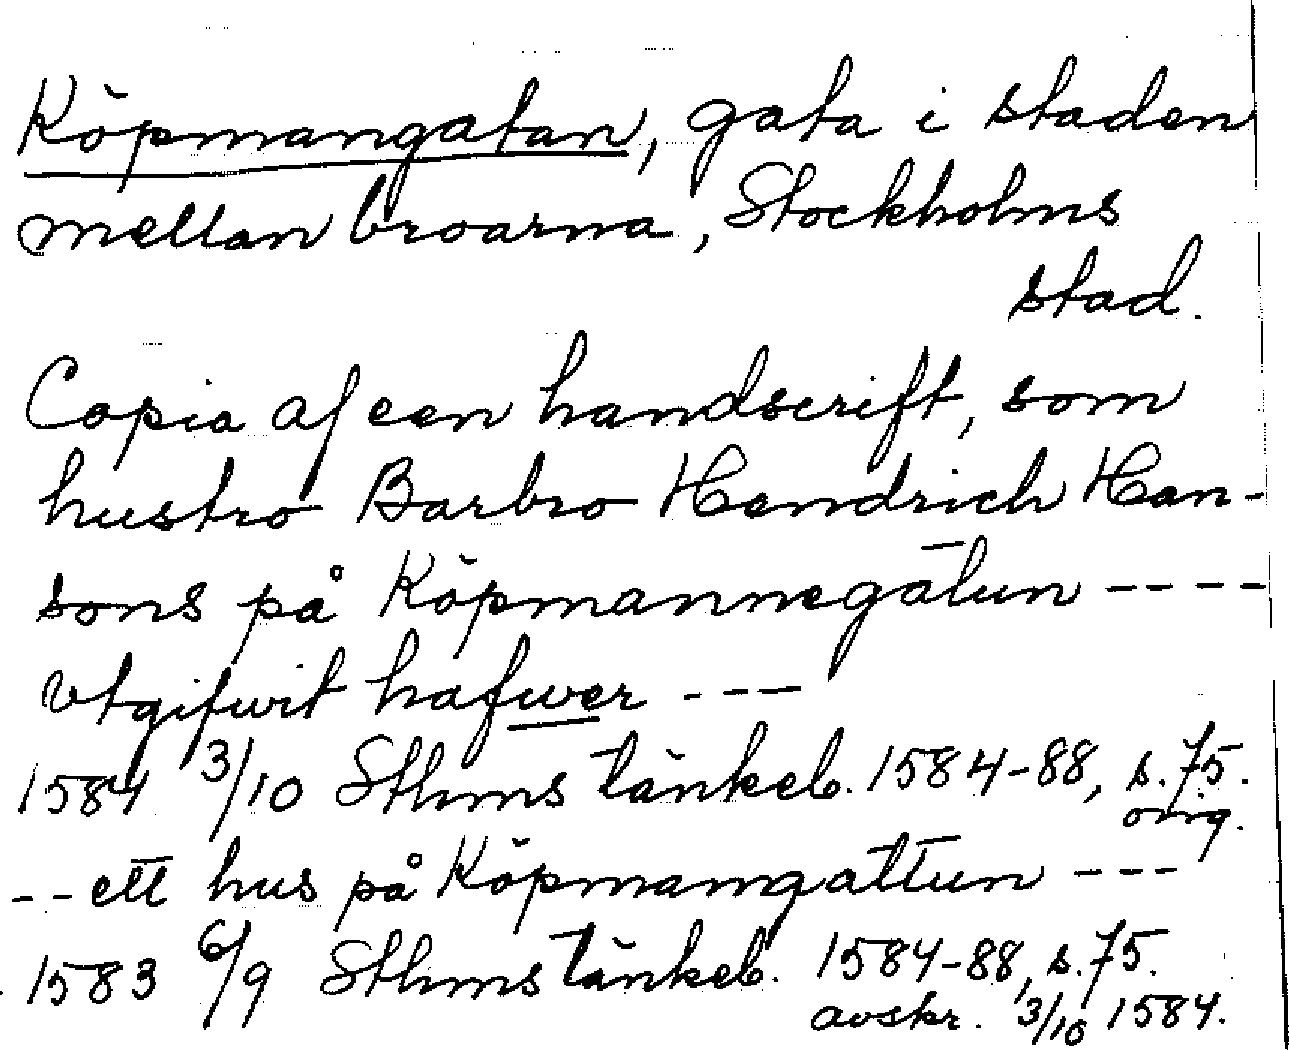 Köpmangatan, gata i staden
mellan broarna, Stockholms
stad.
Copia af een handscrift, som
hustro Barbro Hendrich Han-
sons på Köpmannegatun ----
vtgifwit hafwer ---
1584 3/10 Sthms tänkeb. 1584-88, s. 75.
orig.
-- ett hus på Köpmamgattun ---
1583 6/9 Sthms tänkeb. 1584-88, s. 75.
avskr. 3/10 1584.